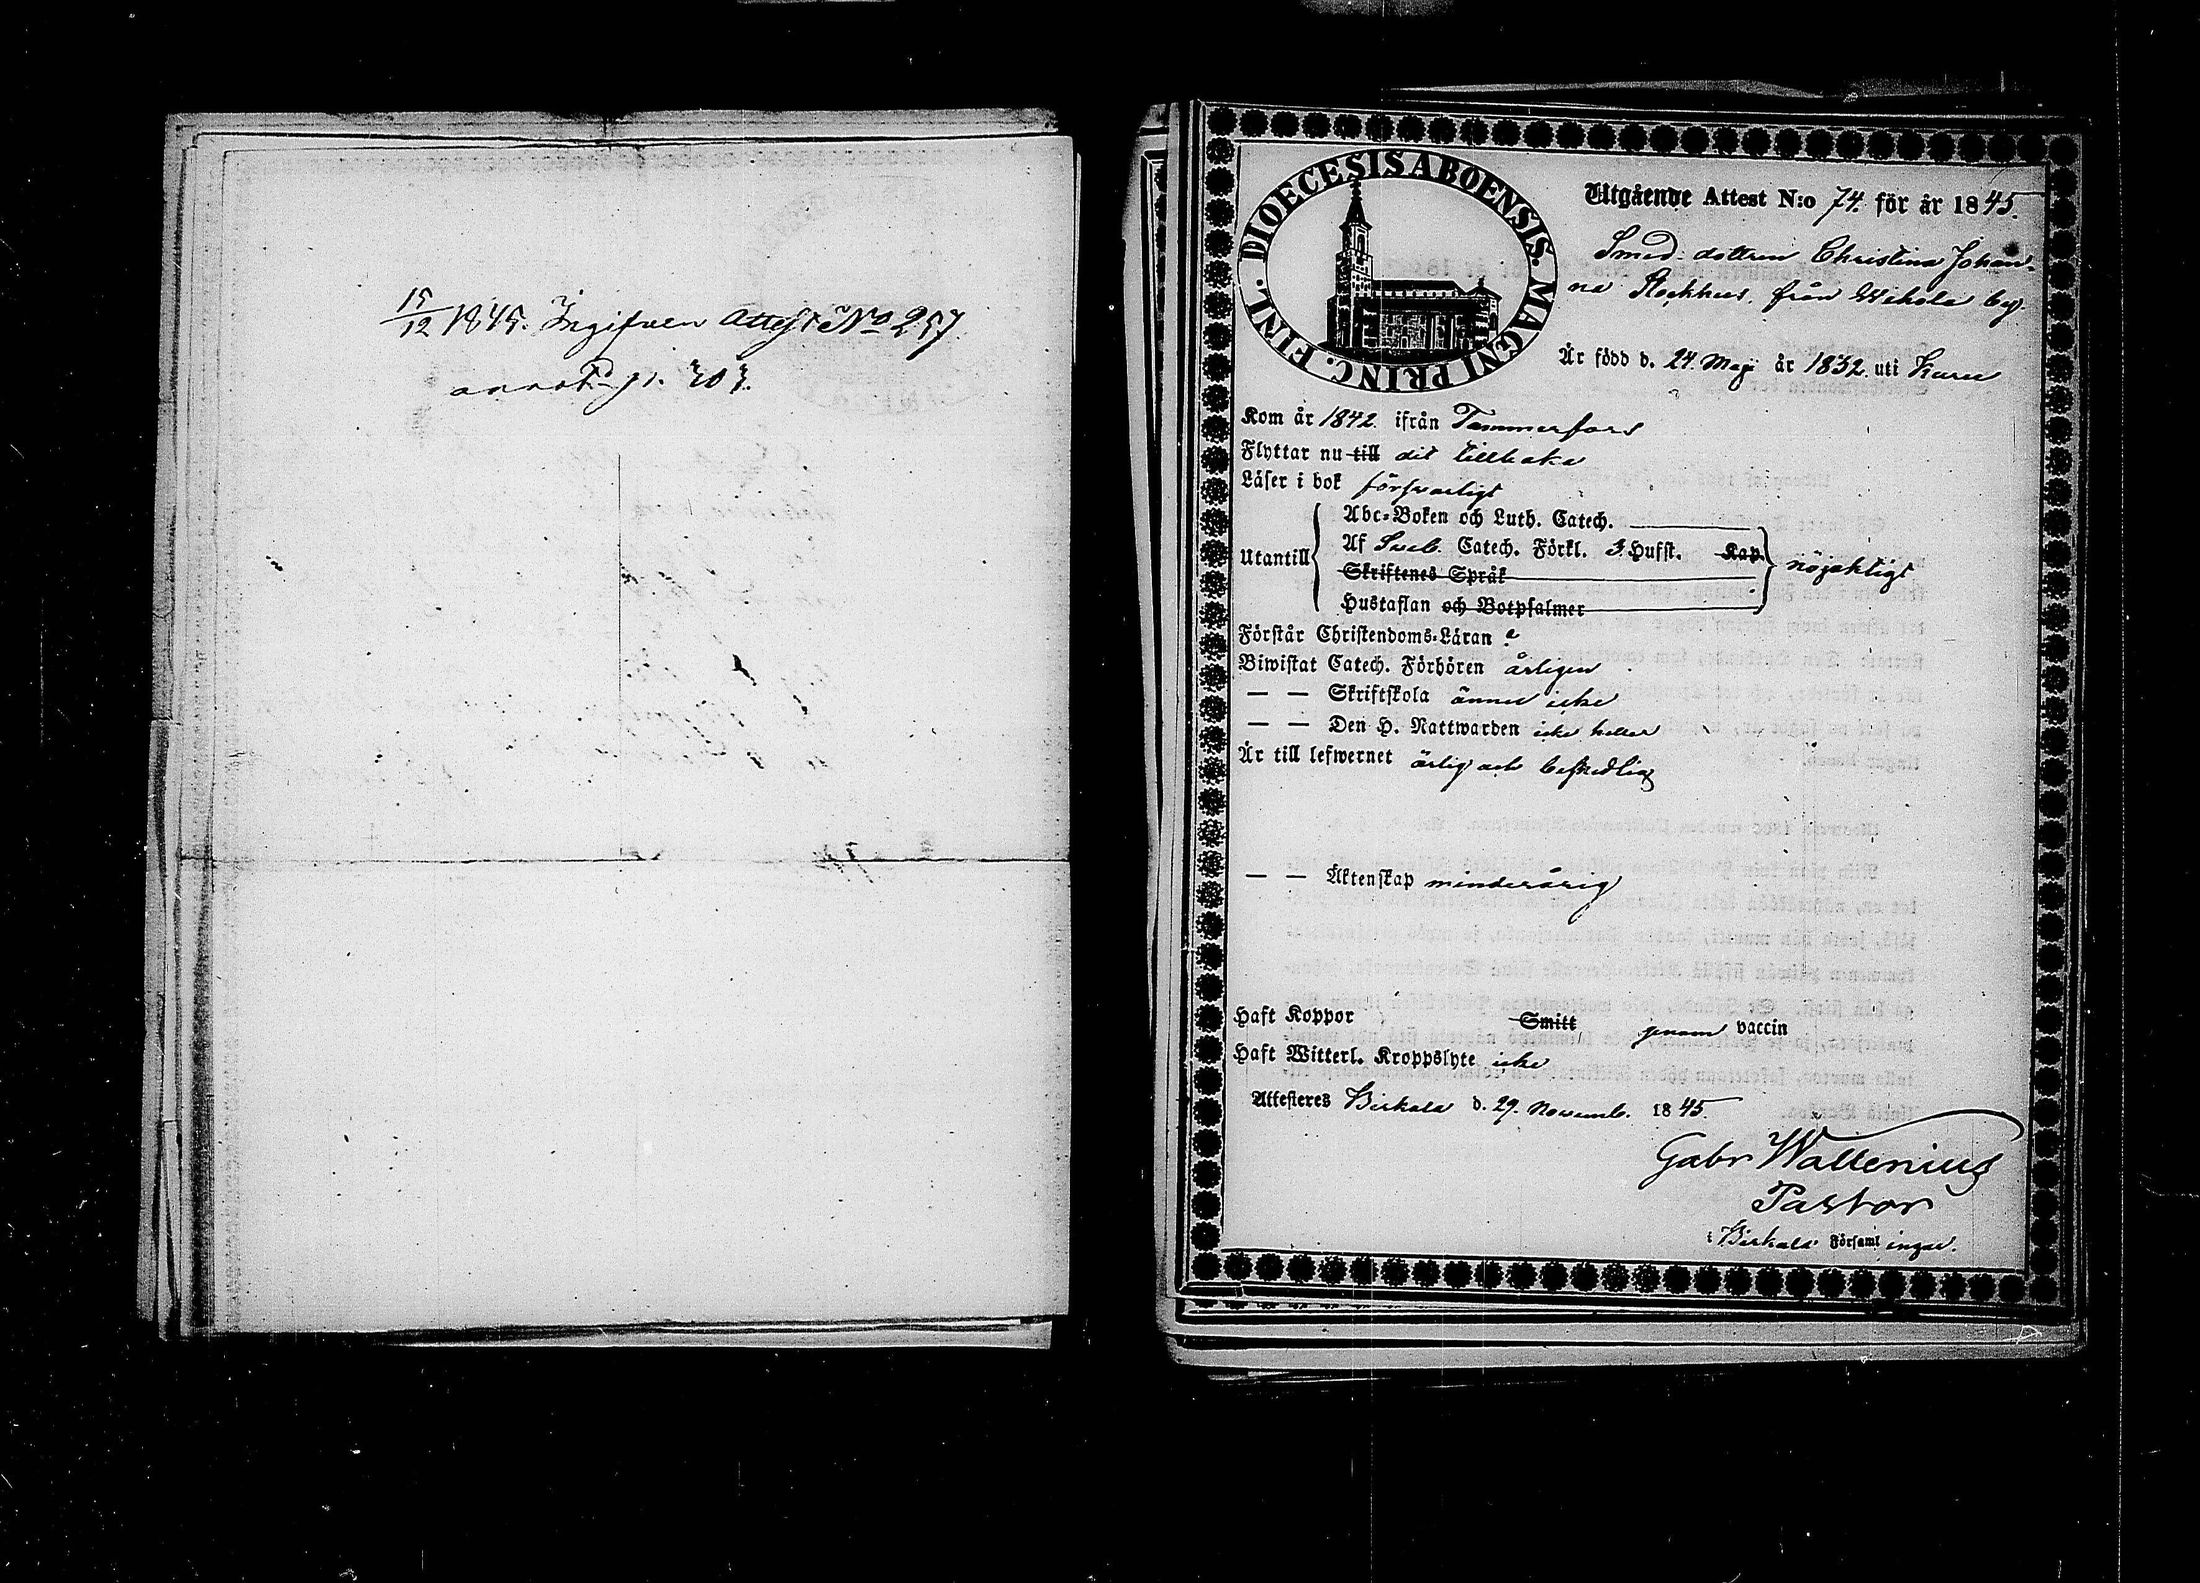 15/12 1845. Ingifven Attest No 257.
annot. p. 303.
DIOECESIS ABOENSIS. MAGNI PRINC. FINL.
Utgående Attest N:o 74. för år 1845.
Smed. dottren Christina Johan-
na Stockhus, från Wihola by.
Är född d. 24. Maji år 1832. uti Kuru
Kom år 1842. ifrån Tammerfors
Flyttar nu till dit tillbaka
Läser i bok försvarligt
Abc-Boken och Luth. Catech.
Utantill Af Sveb. Catech. Förkl. 3. Hufst. Kap. nöjaktigt
Skriftenes Språk
Hustaflan och Botpsalmer
Förstår Christendoms-Läran
Biwistat Catech. Förhören årligen
— — Skriftskola ännu icke
— — Den H. Nattwarden icke heller
Är till lefwernet ärlig och beskedlig
— — Äktenskap minderårig
Haft Koppor Smitt genom vaccin
Haft Witterl. Kroppslyte icke
Attesteres Birkala d. 29. Novemb. 1845.
Gabr Wallenius
Pastor
i Birkala Församlingar.